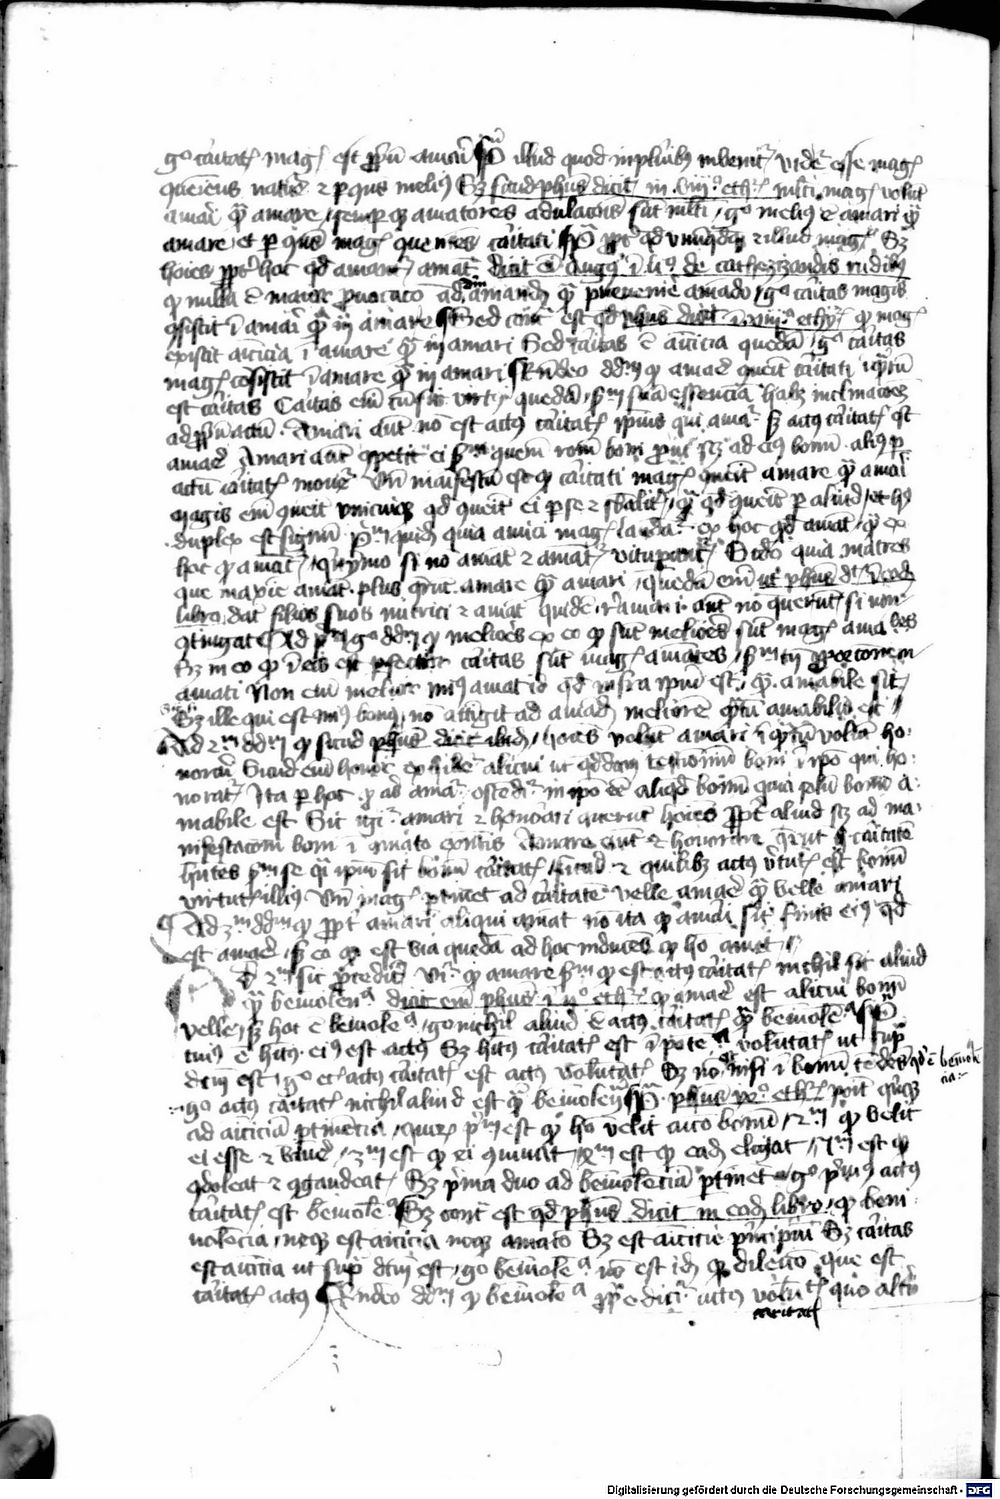 g° caritat(is) mag(is) est p(ro)p(r)iu(m) amari illud quod in plurib(us) inuenit(ur) vide(tur) esse mag(is)
queniens nature et p(er) (con)(se)q(ue)ns melius Sz sicud ph(ilosoph)us dicit in viij° eth(icorum) multi mag(is) volu(n)t
amari q(uam) amare semp(er)q(ue) amatores adulac(i)onis su(n)t multi g° melius e(st) amari q(uam)
amare et p(er) (con)(se)q(ue)ns mag(is) (con)ueniens caritati
ho(m)i(n)es p(ro)pt(er) hoc q(uo)d amant(ur) amant dicit e(n)i(m) Aug(ustinus) i(n) li° de cathezizandis rudib(us)
q(uod) nulla e(st) maior p(ro)uocac(i)o ad amandu(m) q(uam) preuenire amando g° caritas magis
(con)sistit i(n) amari q(uam) in amare Sed cont(ra) est q(uo)d ph(ilosoph)us dicit i(n) viij° ethy(corum) q(uod) mag(is)
existit amicicia i(n) amare q(uam) in amari Sed caritas e(st) amicicia queda(m) g° caritas
mag(is) co(n)sistit i(n) amare q(uam) in amari R(espo)ndeo d(icen)d(u)m q(uod) amare (con)uenit caritati i(n)q(uan)tu(m)
est caritas Caritas eni(m) cu(m) sit virt(us) queda(m) s(ecundu)m sua(m) essencia(m) habz inclinac(i)o(n)e(m)
ad p(ro)p(r)iu(m) actu(m) Amari aut(em) no(n) est actus caritat(is) ip(s)ius qui amat(ur) sz actus caritat(is) est
amare Amari aut(em) (com)petit ei s(ecundu)m (com)mune(m) rat(i)o(n)em boni prout scz ad ei(us) bonu(m) alius p(er)
actu(m) caritat(is) mouet(ur) Vn(de) manifestu(m) est q(uod) caritati mag(is) (con)uenit amare q(uam) amari
magis eni(m) (con)uenit vnicuiqz q(uo)d (con)uenit ei p(er) se et s(u)b(stanti)alit(er) q(uam) q(uo)d (con)uenit p(er) aliud et h(uius)
duplex est signu(m) P(rimu)m q(ui)de(m) quia amici mag(is) lauda(n)t(ur) ex hoc q(uo)d amant q(uam) ex
hoc q(uod) amant(ur) quinymo si no(n) amant et amant(ur) vitup(er)ant(ur) S(e)c(un)do quia matres
que maxi(m)e amant plus queru(n)t amare q(uam) amari queda(m) eni(m) ut ph(ilosoph)us d(icit) i(n) eod(em)
libro dant filios suos nutrici et amant quide(m) r(e)amari aut(em) no(n) querunt si no(n)
(con)tingat Ad p(rimu)m g° d(icen)d(u)m q(uod) meliores ex eo q(uod) su(n)t meliores su(n)t mag(is) amabiles
Sz in eo q(uod) i(n) eis est p(er)fectior caritas su(n)t mag(is) amantes s(ecundu)m t(ame)n p(ro)porc(i)o(n)em
amati Non eni(m) melior min(us) amat id q(uo)d infra ip(su)m est q(uam) amabile sit
Sz ille qui est min(us) bonus no(n) attigit ad amand(um) meliore(m) q(uan)tu(m) amabilis est
Ad 2m d(icen)d(u)m q(uod) sicud ph(ilosoph)us dicit ibid(em) ho(m)i(n)es volu(n)t amari i(n)q(uan)tu(m) volu(n)t ho-
norari Sicud eni(m) honor exhibet(ur) alicui ut q(uo)dda(m) testi(m)oniu(m) boni i(n) ip(s)o qui ho-
norat(ur) Ita p(er) hoc q(uod) amat(ur) oste(n)dit(ur) in ip(s)o e(ss)e aliq(uo)d bonu(m) quia solu(m) bonu(m) a-
mabile est Sic igit(ur) amari et honorari queru(n)t ho(m)i(n)es p(ro)pt(er) aliud scz ad ma-
nifestac(i)o(n)em boni i(n) amato existe(n)tis Amare aut(em) et honorare queru(n)t caritate(m)
h(abe)ntes p(ro)pt(er) se q(uas)i ip(su)m sit bonu(m) caritat(is) sicud et quilibz actus v(ir)tut(is) est bonu(m)
virtut(is) illius Vn(de) mag(is) p(er)tinet ad caritate(m) velle amare q(uam) velle amari
Ad 3m d(icen)d(u)m q(uod) p(ro)pt(er) amari aliqui amant no(n) ita q(uod) amari sit finis ei(us) q(uo)d
est amare sz eo q(uod) est via queda(m) ad hoc inducens q(uod) ho(mo) amet
Ad 2m sic p(ro)cedit(ur) V(idetur) q(uod) amare s(ecundu)m q(uod) est actus caritat(is) nichil sit aliud
q(uam) beniuolen(ci)a dicit eni(m) ph(ilosoph)us i(n) 2° eth(icorum) q(uod) amare est alicui bonu(m)
velle sz hoc e(st) beniuole(nci)a g° nichil aliud e(st) actus caritat(is) q(uam) beniuole(nci)a
cui(us) e(st) h(ab)itus ei(us) est actus Sz h(ab)itus caritat(is) est i(n) pote(nci)a volu(n)tat(is) ut sup(ra)
d(i)c(tu)m est g° et(iam) actus caritat(is) est actus volu(n)tat(is) Sz no(n) nisi i(n) bonu(m) te(n)dens q(uo)d e(st) beniuole(n)
cia
g° actus caritat(is) nichil aliud est q(uam) beniuole(nci)a ph(ilosoph)us ix° eth(icorum) ponit qui(n)qz
ad amicicia(m) p(er)tinencia quor(um) p(rimu)m est q(uod) ho(mo) velit a(mi)co bonu(m) 2m q(uod) velit
ei esse et viuere 3m est q(uod) ei (con)uiuat 4m est q(uod) eade(m) eligat 5m est q(uod)
(con)doleat et (con)gaudeat Sz prima duo ad beniuolencia(m) p(er)tine(n)t g° prim(us) actus
caritat(is) est beniuole(nci)a Sz cont(ra) est q(uo)d ph(ilosoph)us dicit in eod(em) libro q(uod) beni-
uolencia neqz est amicicia neqz amac(i)o Sz est amicicie principiu(m) Sz caritas
est amicicia ut sup(ra) d(i)c(tu)m est g° beniuole(nci)a no(n) est ide(m) q(uod) dilecc(i)o que est
caritat(is) actus R(espo)ndeo d(icen)d(u)m q(uod) beniuole(nci)a p(ro)p(ri)e dicit(ur) actus volu(n)t(atis) quo alt(er)i
caritat(is)
Digitalisierung gefördert durch die Deutsche Forschungsgemeinschaft - DFG